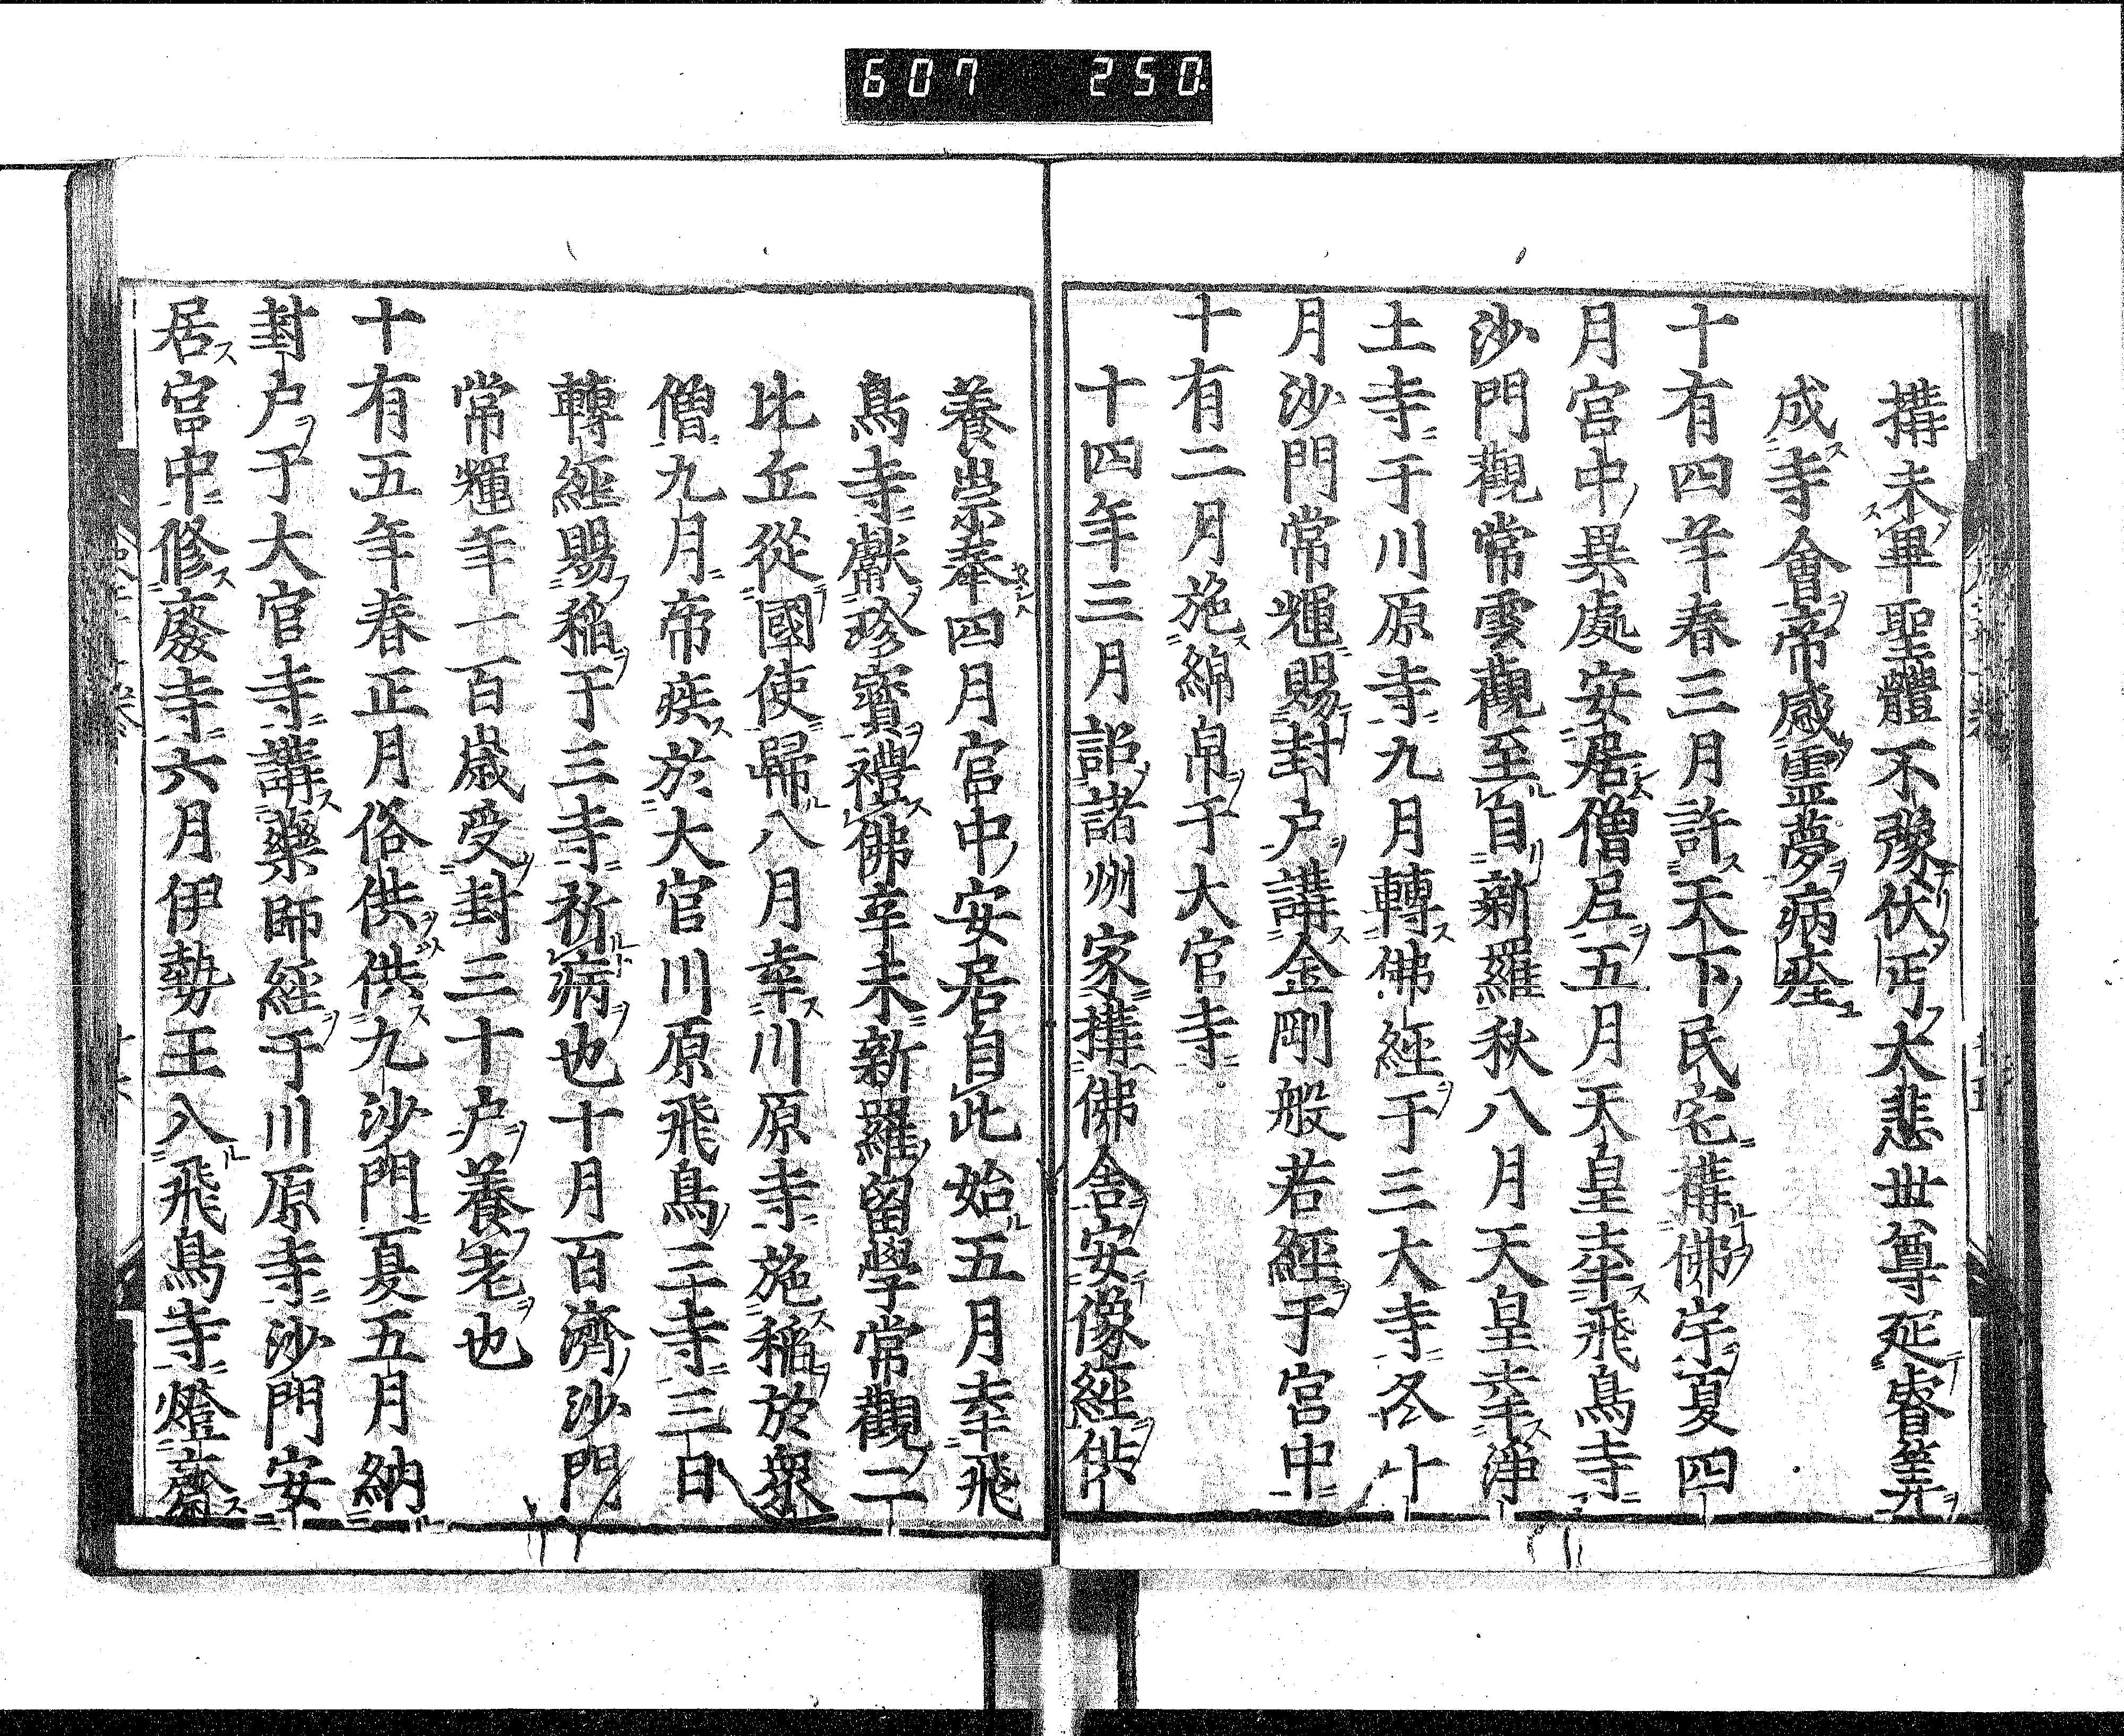 607 250
搆未畢聖體不豫伏丐大悲世尊延睿筭
成寺會帝感靈夢病痊
十有四年春三月許天下民宅搆佛宇夏四
月宮中異處安居僧尼五月天皇幸飛鳥寺
沙門觀常雲觀至自新羅秋八月天皇幸淨
土寺于川原寺九月轉佛經于三大寺冬十
月沙門常輝賜封户講金剛般若經于宮中
十有二月施綿帛于大官寺
十四年三月詔諸州家搆佛舍安像經供
養崇奉四月宮中安居自此始五月幸飛
鳥寺獻珍寳禮佛幸未新羅留學常觀二
比丘從國使歸八月幸川原寺施稲於衆
僧九月帝疾於大官川原飛鳥三寺三日
轉經賜稲于三寺祈病也十月百濟沙門
常輝年一百歳受封三十户養老也
十有五年春正月俗供供九沙門夏五月納
封户于大官寺講藥師經于川原寺沙門安
居宮中修廢寺六月伊勢王入飛鳥寺燈齋